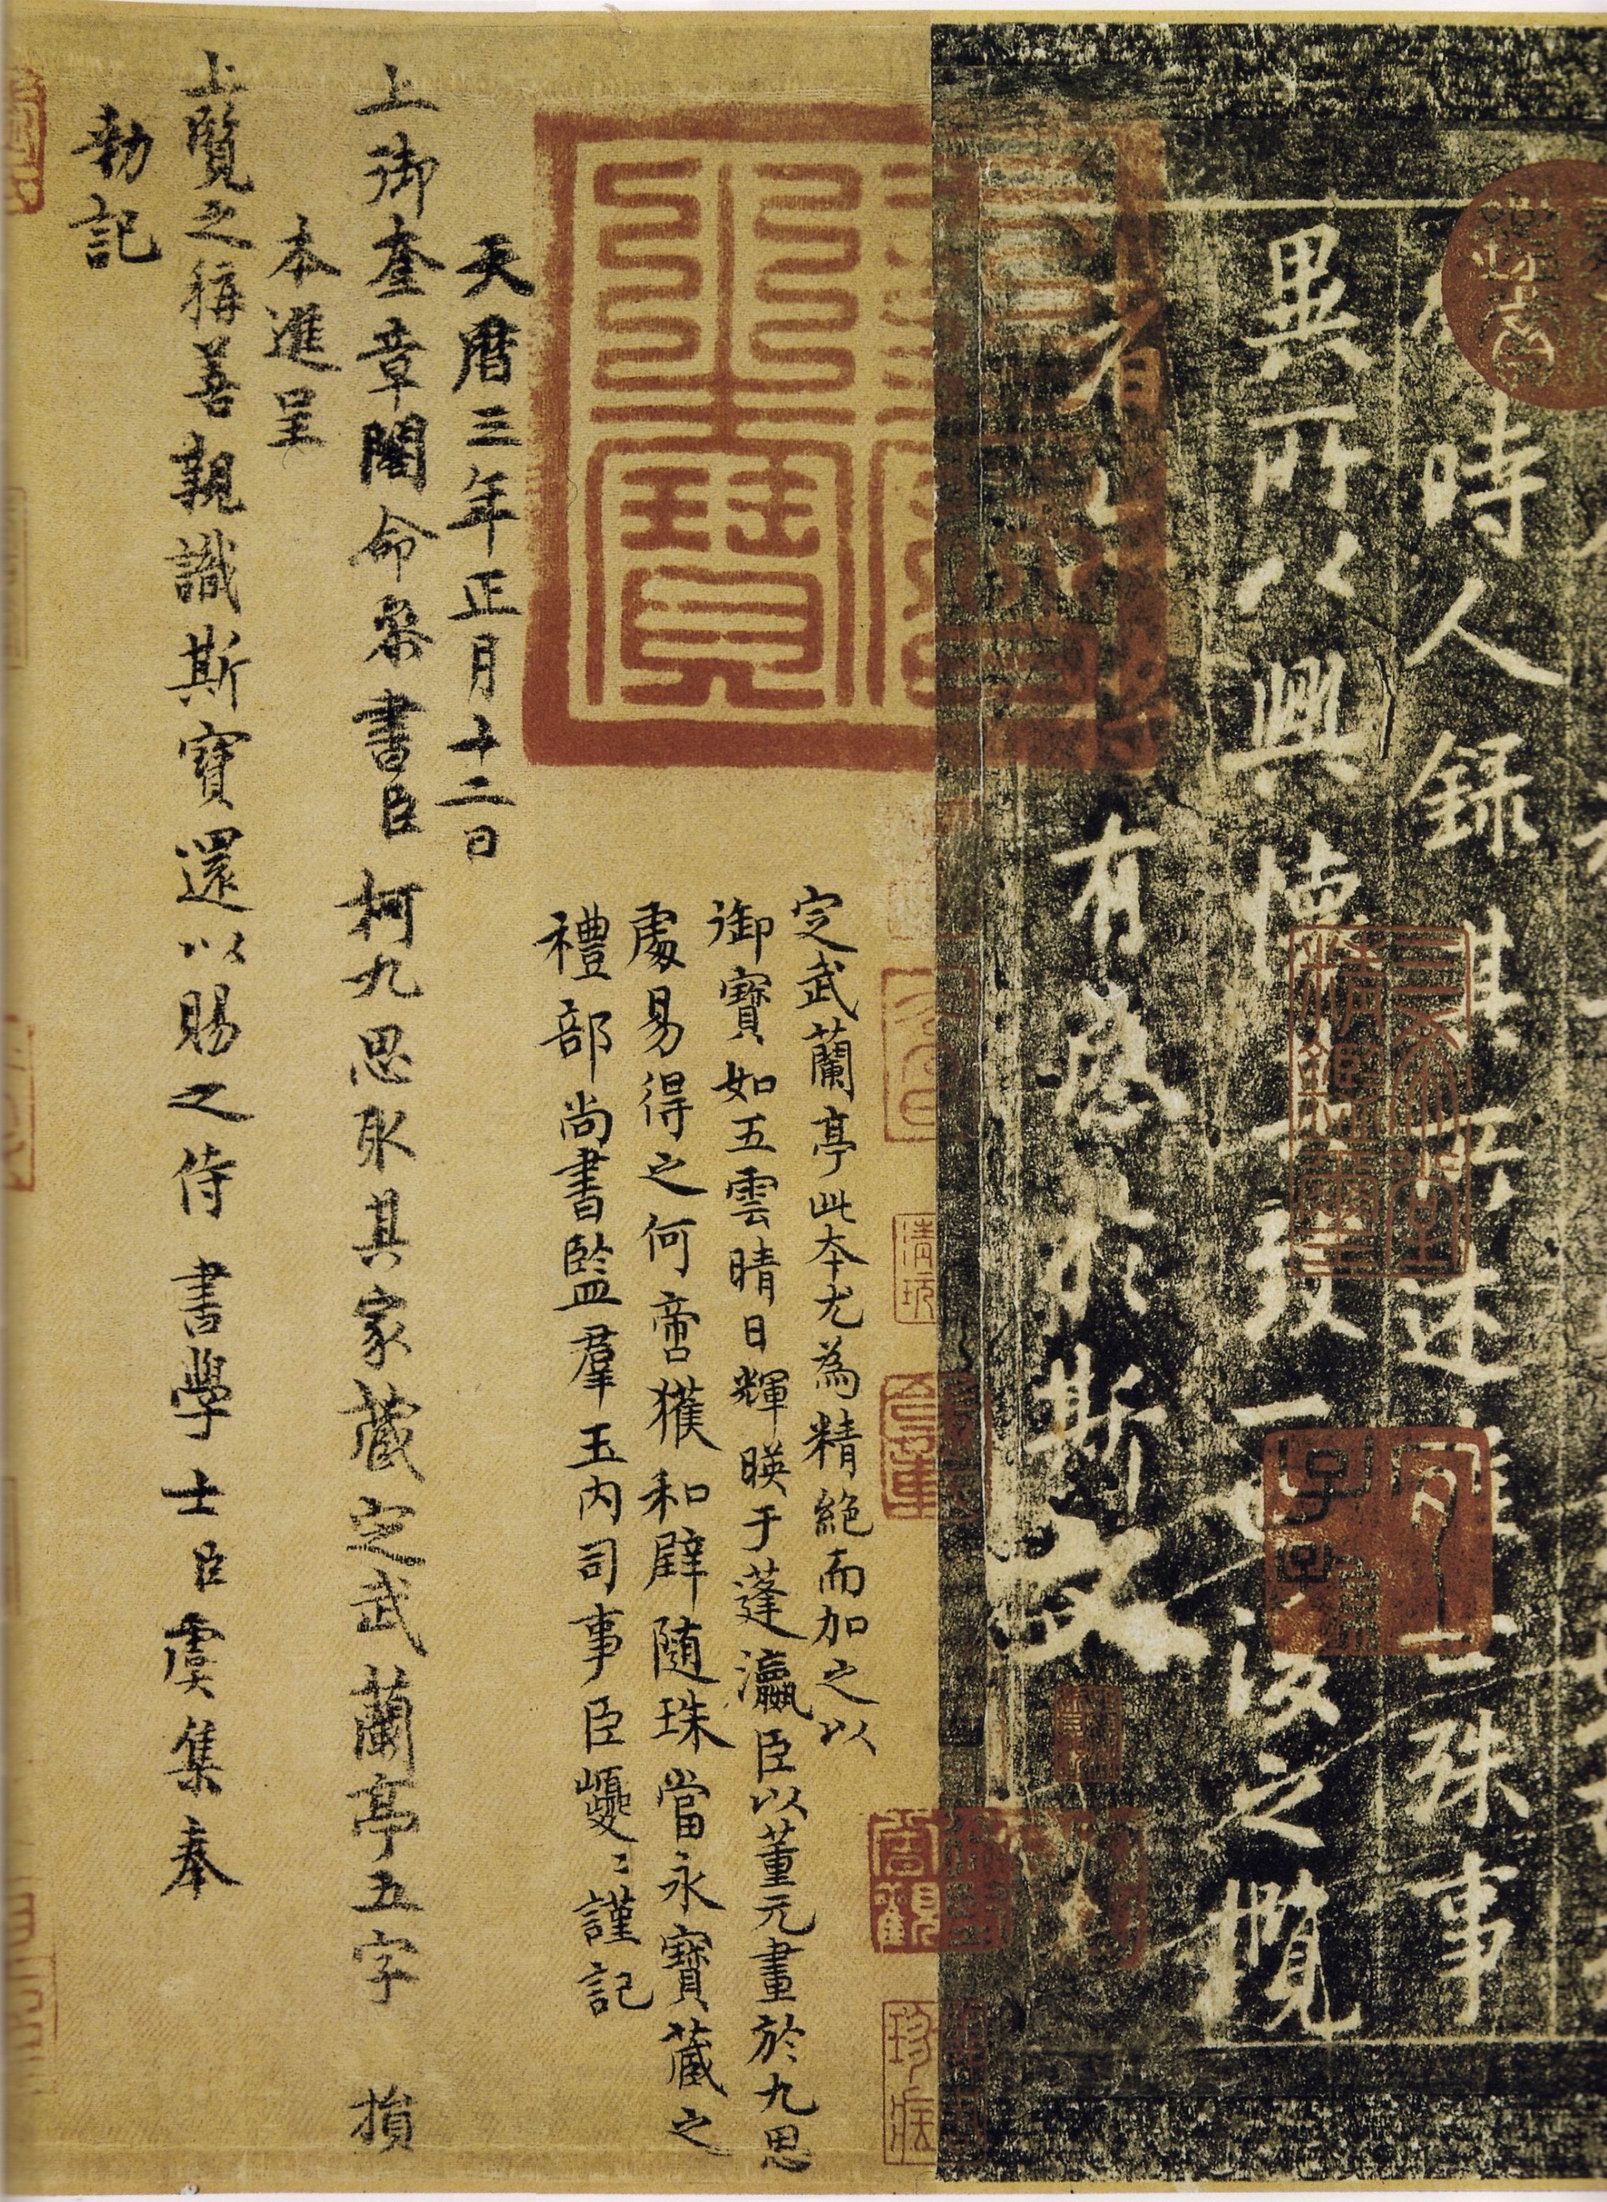 時人錄其所述雖世殊事
異所以興懷其致一也後之攬
者
有感於斯文
定武蘭亭此本尤為精絕而加之以
御寶如五雲晴日輝暎于蓬瀛臣以董元畫於九思
處易得之何啻獲和璧隨珠當永寶藏之
禮部尚書監羣玉內司事臣巙〻謹記
天曆三年正月十二日
上御奎章閣命叅書臣柯九思取其家藏定武蘭亭五字損
本進呈
上覽之稱善親識斯寶還以賜之侍書學士臣虞集奉
勅記